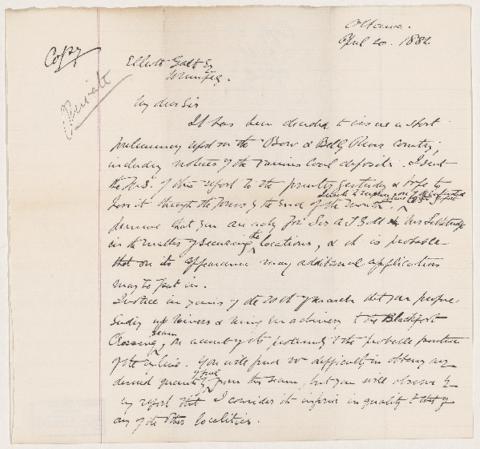 Ottawa.
April 20. 1882
Copy
Private
Elliott Galt Esq
Winnipeg.
My dear Sir
It has been decided to issue a short
preliminary report on the Bow & Belly Rivers country,
including notices of the various coal deposits. I sent
the M.S. of this report to the printer yesterday & hope to
have it through the press by the end of the month. I
perceive that you are acting for Sir A T Galt
in the matter of securing the locations, & it is probable
that on its appearance many additional applications
may be put in.
I notice in yours of the 20th of March that you propose
sending up miners & mining machinery to the Blackfoot
Crossing seam, on account of the
of the line. You will find no difficulty in obtaining any
desired quantity of fuel from this seam, but you will observe by
my report that I consider it inferior in quality to that of
any of the other localities.